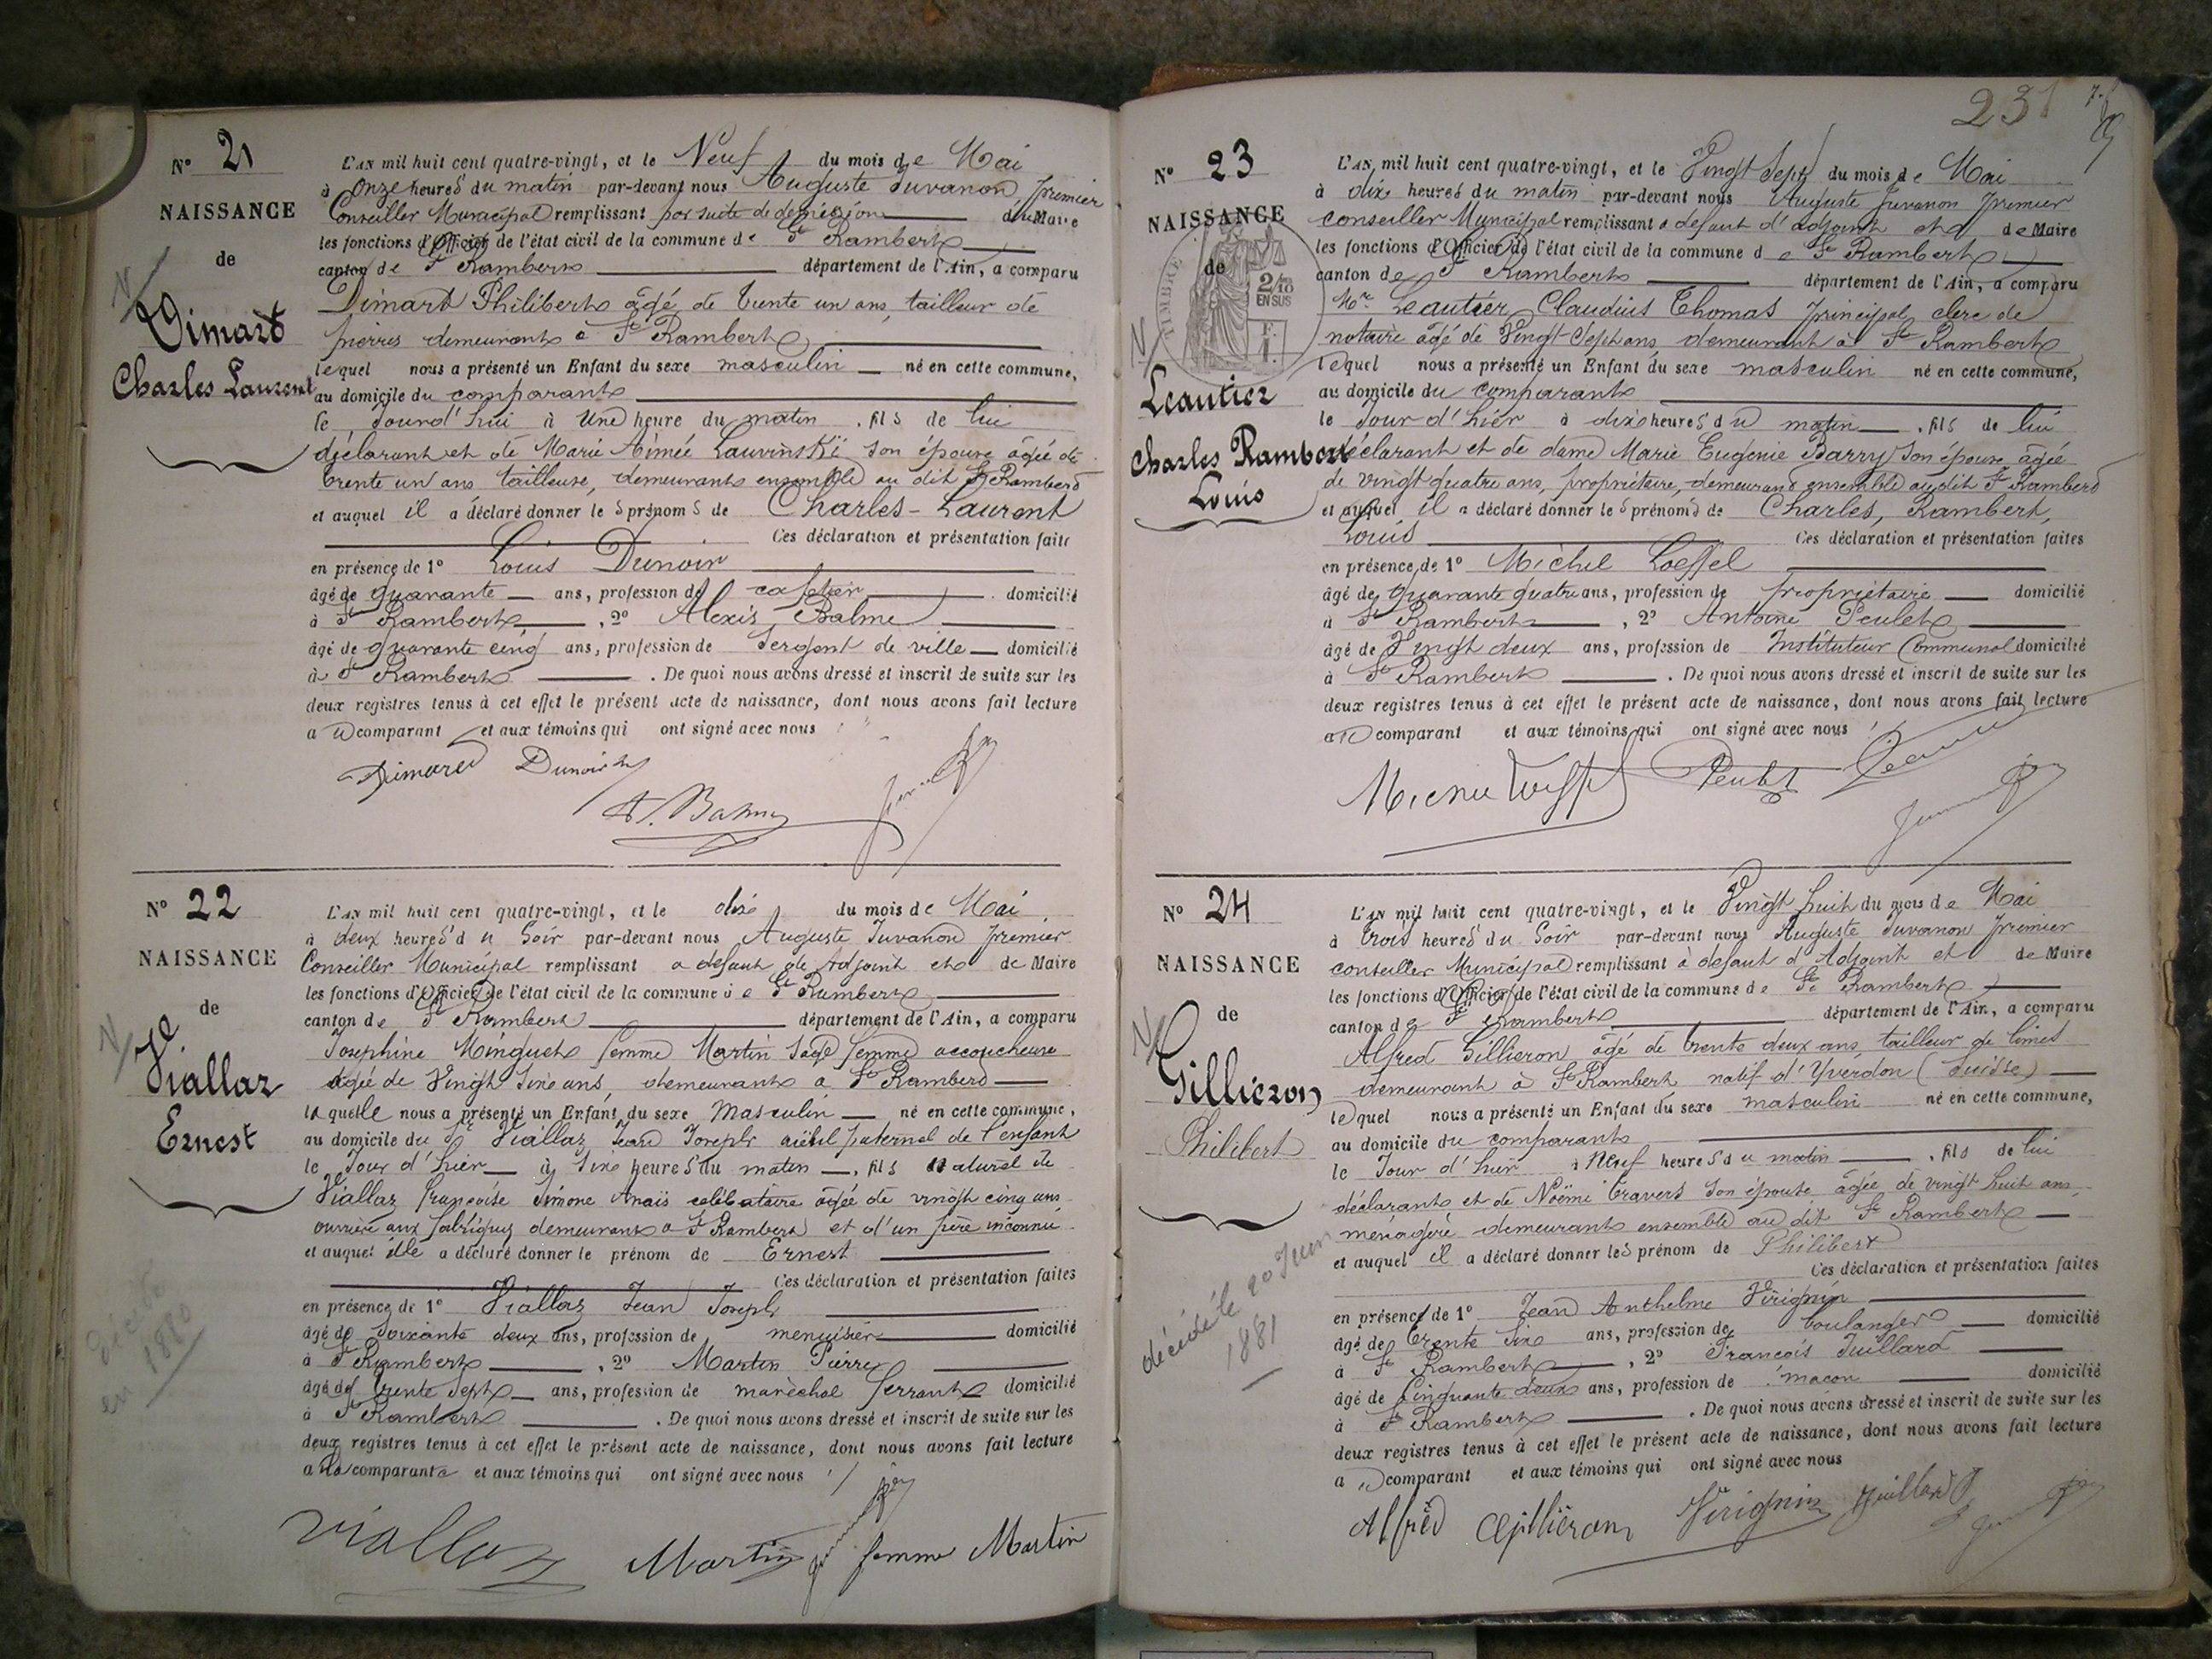 N° 21
NAISSANCE
de
Dimard
Charles Laurent
L'AN mil huit cent quatre-vingt, et le Neuf du mois de Mai
à onze heures du matin par-devant nous Auguste Juvanon premier
Conseiller Municipal remplissant par suite de démission du Maire
les fonctions d'Officier de l'état civil de la commune de St Rambert
canton de St Rambert département de l'Ain, a comparu
Dimard Philibert âgé de trente un ans, tailleur de
pierres demeurant à St Rambert
lequel nous a présenté un Enfant du sexe masculin né en cette commune,
au domicile du comparant
le Jourd'hui à Une heure du matin, fils de lui
déclarant et de Marie Aimée Lauvinski son épouse âgée de
trente un ans tailleuse, demeurants ensemble au dit St Rambert
et auquel il a déclaré donner les prénoms de Charles-Laurent
Ces déclaration et présentation faite
en présence de 1° Louis Dunoir
âgé de quarante ans, profession de cafetier domicilié
à St Rambert, 2° Alexis Balme
âgé de quarante cinq ans, profession de Sergent de ville domicilié
à St Rambert. De quoi nous avons dressé et inscrit de suite sur les
deux registres tenus à cet effet le présent acte de naissance, dont nous avons fait lecture
au comparant et aux témoins qui ont signé avec nous
Dimard Dunoir
A. Balme
N° 22
NAISSANCE
de
Viallaz
Ernest
en 1880
L'AN mil huit cent quatre-vingt, et le dix du mois de Mai
à deux heures du Soir par-devant nous Auguste Juvanon premier
Conseiller Municipal remplissant a defaut de Adjoint et de Maire
les fonctions d'Officier de l'état civil de la commune de St Rambert
canton de St Rambert département de l'Ain, a comparu
Josephine Minguet femme Martin Sage femme accoucheuse
âgée de Vingt Six ans, demeurant à St Rambert
laquelle nous a présenté un Enfant du sexe Masculin né en cette commune,
au domicile du Sr Viallaz Jean Joseph aïeul paternel de l'enfant
le Jour d'hier à Six heures du matin, fils naturel de
Viallaz françoise Simone Anaïs celibataire âgée de vingt cinq ans
ouvriere aux fabriques demeurant a St Rambert et d'un père inconnu
et auquel elle a déclaré donner le prénom de Ernest
Ces déclaration et présentation faites
en présence de 1° Viallaz Jean Joseph
âgé de Soixante deux ans, profession de menuisier domicilié
à St Rambert, 2° Martin Pierre
âgé de trente Sept ans, profession de maréchal ferrant domicilié
à St Rambert. De quoi nous avons dressé et inscrit de suite sur les
deux registres tenus à cet effet le présent acte de naissance, dont nous avons fait lecture
a la comparante et aux témoins qui ont signé avec nous
Viallaz Martin femme Martin
231
N° 23
NAISSANCE
de
TIMBRE
2/10
EN SUS
Leautier
Charles Rambert
Louis
L'AN mil huit cent quatre-vingt, et le Vingt Sept du mois de Mai
à dix heures du matin par-devant nous Auguste Juvanon premier
conseiller Municipal remplissant a defaut d'adjoint et de Maire
les fonctions d'Officier de l'état civil de la commune de St Rambert
canton de St Rambert département de l'Ain, a comparu
Mr Leautier Claudius Thomas principal clerc de
notaire âgé de Vingt-Sept ans, demeurant à St Rambert
lequel nous a présenté un Enfant du sexe masculin né en cette commune,
au domicile du comparant
le Jour d'hier à dix heures du matin, fils de lui
déclarant et de dame Marie Eugénie Barry son épouse âgée
de vingt quatre ans, propriétaire, demeurant ensemble au dit St Rambert
et auquel il a déclaré donner les prénoms de Charles, Rambert,
Louis Ces déclaration et présentation faites
en présence de 1° Michel Loeffel
âgé de quarante quatre ans, profession de propriétaire domicilié
à St Rambert, 2° Antoine Peulet
âgé de Vingt deux ans, profession de Instituteur Communal domicilié
à St Rambert. De quoi nous avons dressé et inscrit de suite sur les
deux registres tenus à cet effet le présent acte de naissance, dont nous avons fait lecture
au comparant et aux témoins qui ont signé avec nous
Peulet
N° 24
NAISSANCE
de
Gillieron
Philibert
décédé le 20 Juin
1881
L'AN mil huit cent quatre-vingt, et le Vingt huit du mois de Mai
à trois heures du Soir par-devant nous Auguste Juvanon premier
conseiller Municipal remplissant à defaut d'Adjoint et de Maire
les fonctions d'Officier de l'état civil de la commune de St Rambert
canton de St Rambert département de l'Ain, a comparu
Alfred Gillieron âgé de trente deux ans tailleur de limes
demeurant à St Rambert natif d'Yverdon (Suisse)
lequel nous a présenté un Enfant du sexe masculin né en cette commune,
au domicile du comparant
le Jour d'hier à Neuf heures du matin, fils de lui
déclarant et de Noëmi Travers son épouse âgée de vingt huit ans,
ménagère demeurants ensemble au dit St Rambert
et auquel il a déclaré donner les prénom de Philibert
Ces déclaration et présentation faites
en présence de 1° Jean Anthelme Vérignin
âgé de trente Six ans, profession de boulanger domicilié
à St Rambert, 2° François Juillard
âgé de Cinquante deux ans, profession de maçon domicilié
à St Rambert. De quoi nous avons dressé et inscrit de suite sur les
deux registres tenus à cet effet le présent acte de naissance, dont nous avons fait lecture
au comparant et aux témoins qui ont signé avec nous
Alfred Gilliéron Vérignin Juillard